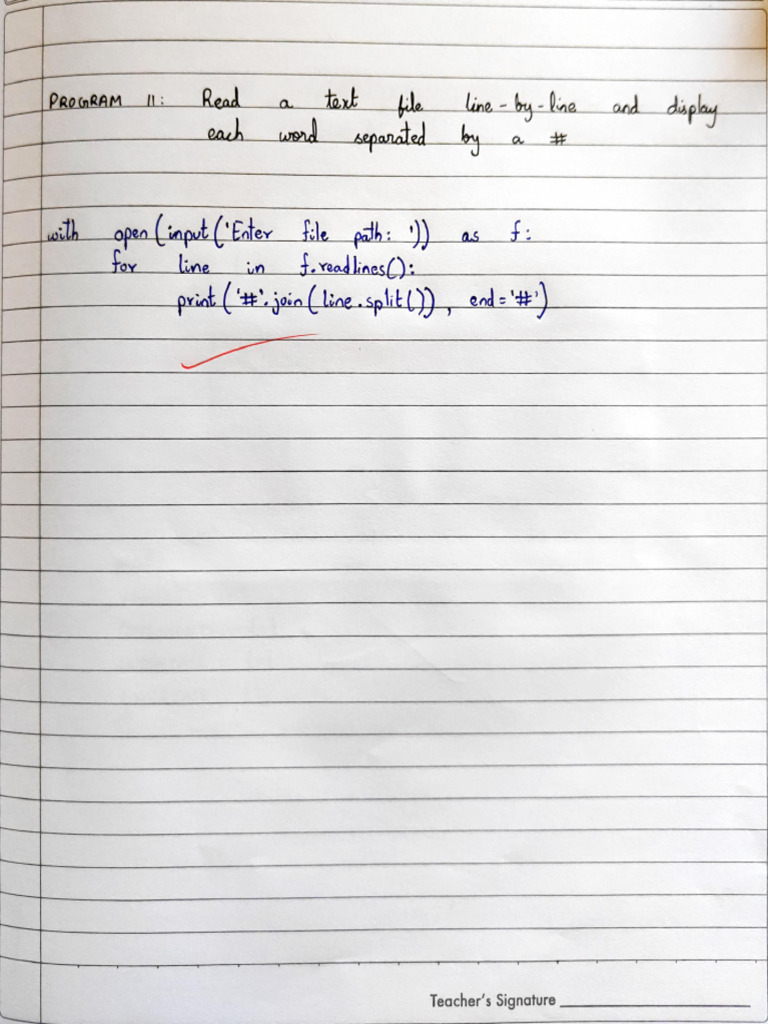 PROGRAM 11: Read a text file line-by-line and display
each word separated by a #
with open(input('Enter file path: ')) as f:
for line in f.readlines():
print('#'.join(line.split()), end='#')
Teacher's Signature